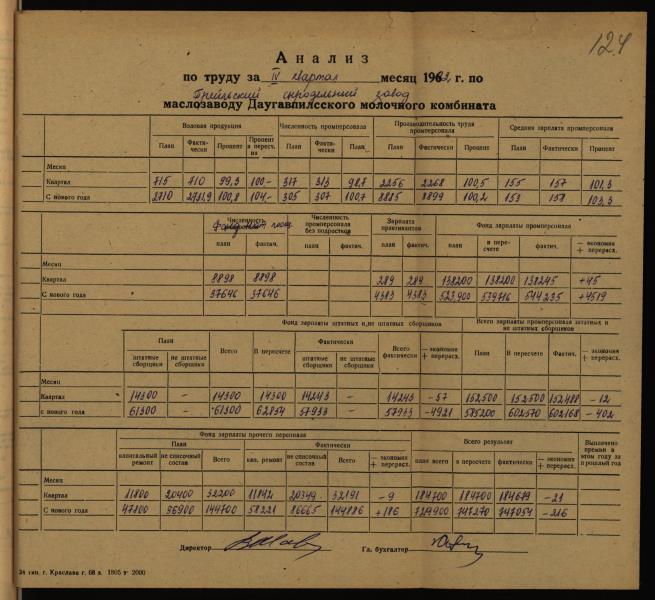 124
Анализ
по труду за IV квартал месяц 196 г. по
завод
маслозаводу Даугавпилсского молочного комбината
Валовая продукция Численность промперсонала Производительность труда промперсонала Средняя зарплата промперсонала
План Факти-чески Процент Процент в пересч. на План Факти-чески План План Фактически Процент План Фактически Процент
Месяц
Квартал 715 710 99,3 100,- 317 313 98,7 2256 2268 100,5 155 157 101,3
С нового года 2710 2731,9 100,8 104,- 305 307 100,7 8885 8899 100,2 153 158 103,3
Численность Численность промперсонала без подростков Зарплата практикантов Фонд зарплаты промперсонала
план фактич. план фактич. план фактич. план в пере-счете фактич. — экономия + перерасх.
Месяц
Квартал 8898 8898 289 289 138200 138200 138245 +45
С нового года 37646 37646 4383 4383 523900 539716 544235 +4519
Фонд зарплаты штатных и не штатных сборщиков Всего зарплаты промперсонала штатных и не штатных сборщиков
План Всего В пересчете Фактически Всего фактически — экономия + перерасх. План В пересчете Фактич. — экономия + перерасх.
штатные сборщики не штатные сборщики штатные сборщики не штатные сборщики
Месяц
Квартал 14300 - 14300 14300 14243 - 14243 -57 152500 152500 152488 -12
с нового года 61300 - 61300 62854 57933 - 57933 -4921 585200 602570 602168 -402
Фонд зарплаты прочего персонала Всего результат Выплачено премии в этом году за прошлый год
План Фактически
капитальный ремонт не списочный состав Всего кап. ремонт не списочный состав Всего — экономия + перерасх. план всего в пересчете фактически — экономия + перерасх.
Месяц
Квартал 11800 20400 32200 11842 20349 32191 -9 184700 184700 184679 -21
С нового года 47800 96900 144700 58221 86665 144886 +186 729900 747270 747054 -216
Директор Гл. бухгалтер
24 тип. г. Краслава г. 68 з. 1805 т 2000